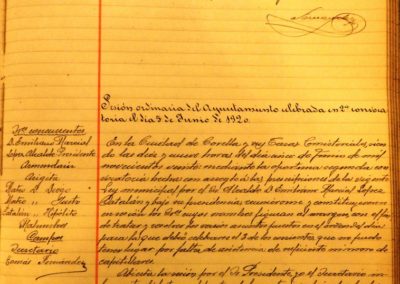 Sesión ordinaria del Ayuntamiento celebrada en 2ª convoca-
toria el día 5 de Junio de 1920.
Sres concurrentes
D. Emiliano Marcial
López Alcalde Presidente
Armendariz
Arigita
Mateo D. Diego
Mateo " Justo
Catalán " Hipólito
Secretario
Tomás Fernández
En la Ciudad de Corella y sus Casas Consistoriales, sien-
do las diez y nueve horas del día cinco de Junio de mil
novecientos veinte mediante la oportuna segunda con-
vocatoria hecha con arreglo á las prescripciones de la vigente
Ley municipal por el Sr. Alcalde D. Emiliano Marcial López
Catalán y bajo su presidencia reuniéronse y constituyeron
en sesión los Sres cuyos nombres figuran al margen, con el fin
de tratar y resolver los varios asuntos puestos en el orden del día
para la que debió celebrarse el 3 de los corrientes que no pudo
tener lugar por falta de asistencia de suficiente número de
capitulares.
Abierta la sesión por el Sr. Presidente, yo el Secretario